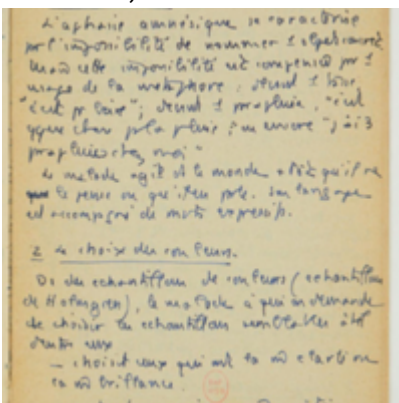 L'aphasie amnésique se caractérise
par l'impossibilité de nommer 1 objet
mais cette impossibilité est compensée par 1
usage de la métaphore ; devant 1
"c'est pr boire" ; devant 1 parapluie, "c'est
qque chose pr la pluie", ou encore "j'ai 3
parapluies chez moi"
Le malade agit ds le monde + tôt qu'il ne
le pense ou qu'il en parle. Son langage
est accompagné de mots expressifs.
2 Le choix des couleurs.
Ds des échantillons de couleurs (échantillons
de Holmgren), le malade à qui on demande
de choisir les échantillons semblables à tel
d'entre eux
— choisit ceux qui ont la m̂ clarté ou
la m̂ brillance.